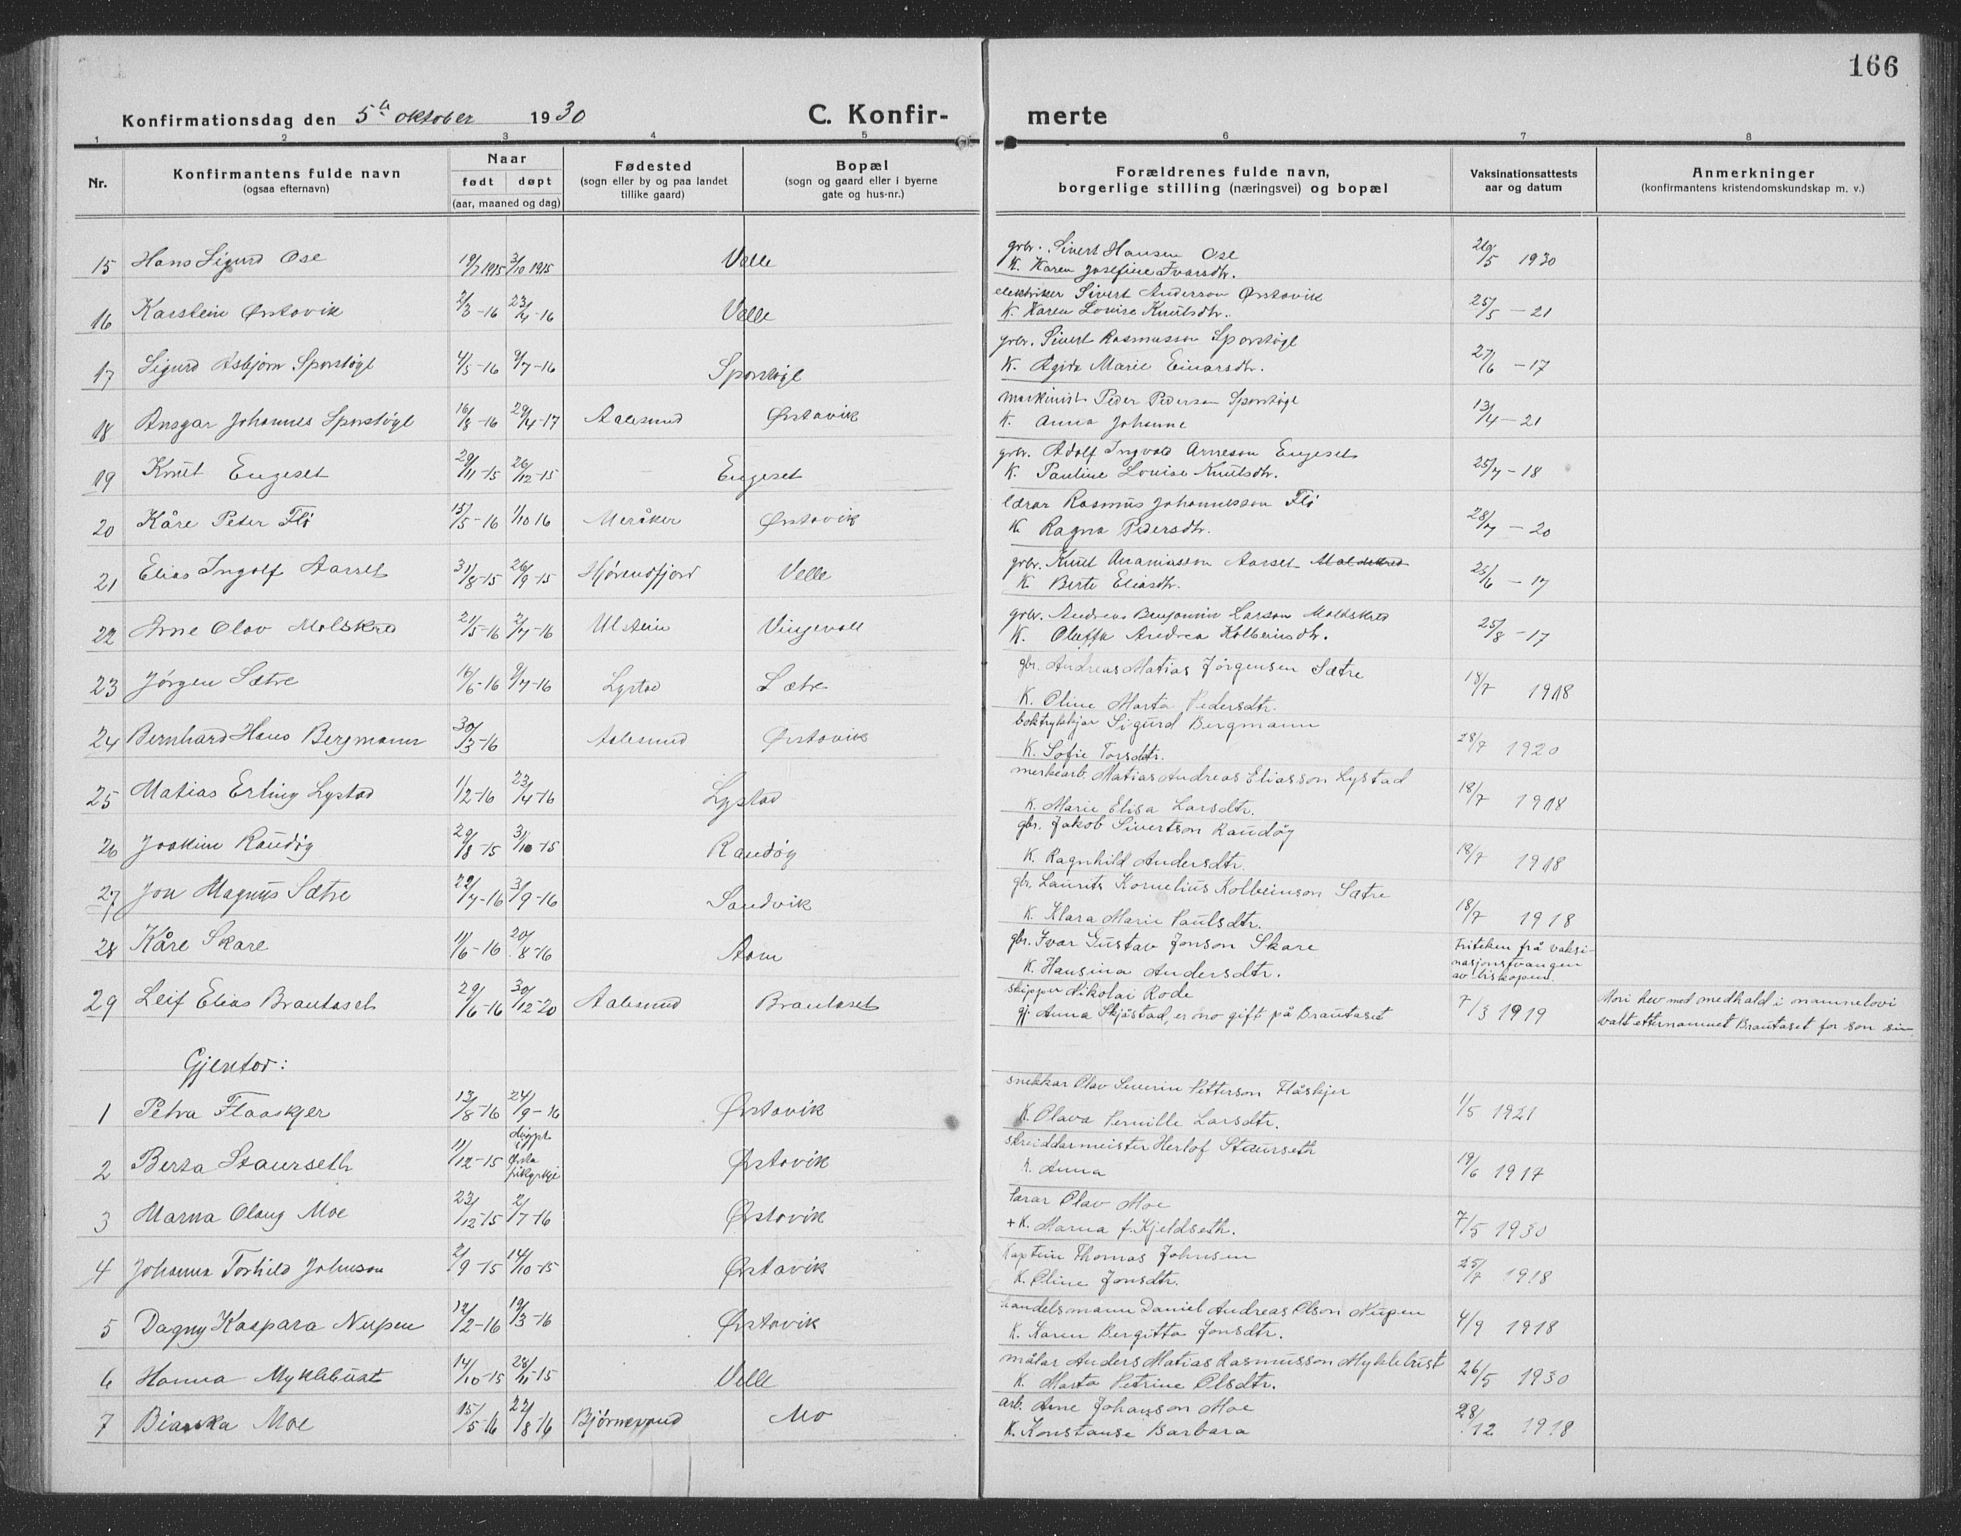 166
Konfirmationsdag den 5te oktober 1930 C. Konfirmerte
1 2 3 4 5 6 7 8
Nr. Konfirmantens fulde navn (ogsaa efternavn) Naar født døpt (aar, maaned og dag) Fødested (sogn eller by og paa landet tillike gaard) Bopæl (sogn og gaard eller i byerne gate og hus-nr.) Forældrenes fulde navn, borgerlige stilling (næringsvei) og bopæl Vaksinationsattests aar og datum Anmerkninger (konfirmantens kristendomskundskap m. v.)
15 Hans Sigurd Ose 19/7 1915 3/10 1915 Velle grbr. Sivert Hansen Ose 26/5 1930
K. Karen Josefine Ivarsdtr.
16 Karstein Ørstavik 2/3-16 23/4-16 Velle elektriker Sivert Anderson Ørstavik 25/5 - 21
K. Karen Lovise Knutsdtr.
17 Sigurd Asbjørn Sporstøyl 4/5-16 9/7-16 Sporstøyl grbr. Sivert Rasmusson Sporstøyl 27/6 - 17
K. Agide Marie Einarsdtr.
18 Ansgar Johannes Sporstøyl 16/8-16 29/4-17 Aalesund Ørstavik maskinist Peder Pederson Sporstøyl 13/4 - 21
K. Anna Johanne
19 Knut Engeset 29/11-15 26/12-15 Engeset grbr. Adolf Ingvald Arneson Engeset 25/7 - 18
K. Pauline Lovise Knutsdtr.
20 Kåre Peter Flø 15/5-16 1/10 16 Meråker Ørstavik lærar Rasmus Johannesson Flø 28/7 - 20
K. Ragna Pedersdtr.
21 Elias Ingolf Aarset 31/8-15 26/9-15 Hjørendfjord Velle grbr. Knut Ananiasson Aarset Maldskred 25/6 - 17
K. Berte Eliasdtr.
22 Arne Olav Molskred 21/5-16 2/7-16 Ulstein Vingevoll grbr. Andreas Benjamin Larson Moldskred 25/8 - 17
K. Oluffa Andrea Kolbeinsdtr.
23 Jørgen Sætre 16/6-16 9/7-16 Lystad Sætre gbr. Andreas Matias Jørgensen Sætre 18/7 1918
K. Oline Marta Pedersdtr.
24 Bernhard Hans Bergmann 30/3-16 Aalesund Ørstavik boktrykkjar Sigurd Bergmann 28/7 1920
K. Sofie Torsdtr.
25 Matias Erling Lystad 1/2-16 23/4-16 Lystad merkearb. Matias Andreas Eliasson Lystad 18/7 1918
K. Marie Elisa Larsdtr.
26 Joakim Raudøy 29/8-15 31/10-15 Raudøy gbr. Jakob Sivertson Raudøy 18/7 1918
K. Ragnhild Andersdtr.
27 Jon Magnus Sætre 22/7-16 3/9-16 Sandvik gbr. Laurits Kornelius Kolbeinson Sætre 18/7 1918
K. Klara Marie Paulsdtr.
28 Kåre Skare 11/6-16 20/8-16 Aam gbr. Ivar Gustav Jonson Skare Friteken frå vaksi-
K. Hansina Andersdtr. nasjonstvangen
av biskopen.
29 Leif Elias Brautaset 29/6-16 30/12-20 Aalesund Brautaset skipper Nikolai Rode 7/3 1919 Mori hev med medhald i namnelovi
gj. Anna Skjåstad, er no gift på Brautaset valt etternamnet Brautaset for son sin
Gjentor:
1 Petra Flaaskjer 13/8-16 24/9-16 Ørstavik snekkar Olav Severin Petterson Flåskjer 1/5 1921
K. Olava Pernille Larsdtr.
2 Berta Staurseth 11/12-15 døypt i Ørsta frikyrkje Ørstavik skreddarmeister Herlof Staurseth 19/6 1917
K. Anna
3 Marna Olaug Moe 23/12-15 2/7-16 Ørstavik lærar Olav Moe 7/5 1930
+ K. Marna f. Kjeldseth.
4 Johanna Torhild Johnson 2/9-15 14/10-15 Ørstavik Kaptein Thomas Johnsen 25/7 1918
K. Oline Jonsdtr.
5 Dagny Kaspara Nupen 12/2-16 19/3-16 Ørstavik handelsmann Daniel Andreas Olson Nupen 4/9 1918
K. Karen Bergitta Jonsdtr.
6 Hanna Myklebust 14/10-15 28/11-15 Velle målar Anders Matias Rasmusson Myklebust 26/5 1930
K. Marta Petrine Olsdtr.
7 Bianka Moe 15/5-16 27/8-16 Bjørnesund Mo arb. Arne Johanson Moe 28/12 1918
K. Konstanse Barbara